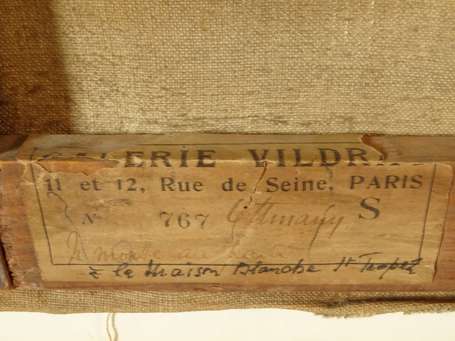 GALERIE VILDRAC
11 et 12, Rue de Seine, PARIS
N° 767 S
à la Maison Blanche St Tropez